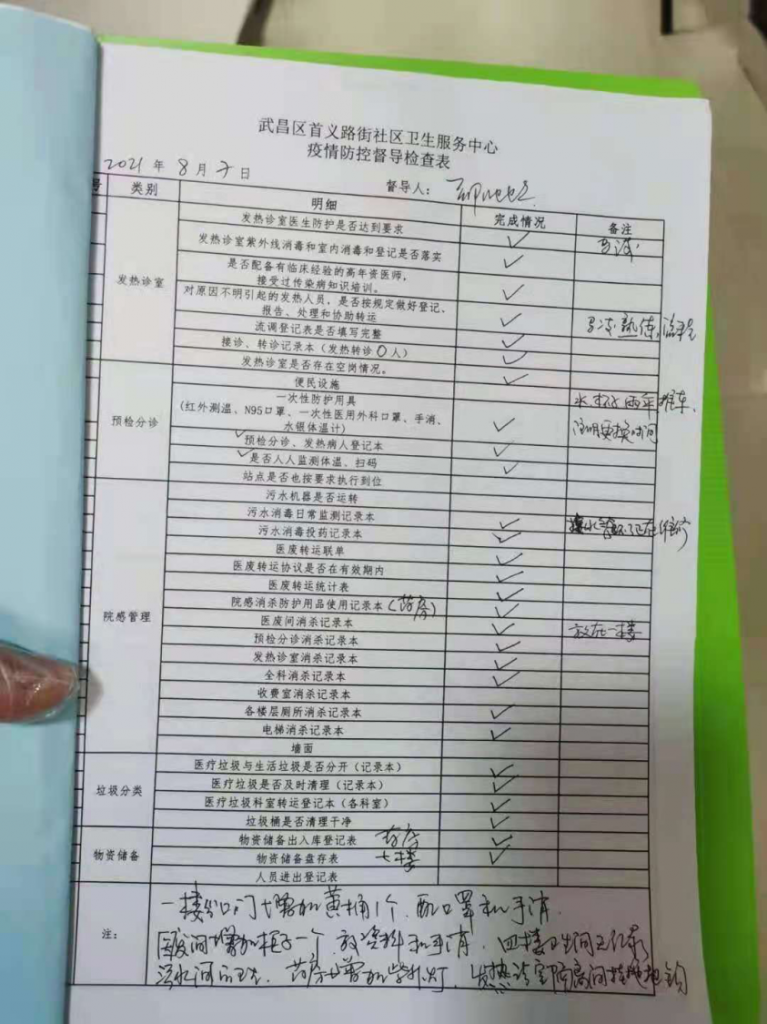 武昌区首义路街社区卫生服务中心
疫情防控督导检查表
2021 年 8 月 日 督导人：
号 类别 明细 完成情况 备注
发热诊室医生防护是否达到要求 ✓
发热诊室紫外线消毒和室内消毒和登记是否落实 ✓
是否配备有临床经验的高年资医师，
接受过传染病知识培训。 ✓
发热诊室
对原因不明引起的发热人员，是否按规定做好登记、
报告、处理和协助转运 ✓
流调登记表是否填写完整 ✓
接诊、转诊记录本（发热转诊 0 人） ✓
发热诊室是否存在空岗情况。 ✓
便民设施
一次性防护用具
预检分诊 (红外测温、N95口罩、一次性医用外科口罩、手消、
水银体温计) ✓
预检分诊、发热病人登记本 ✓
是否人人监测体温、扫码 ✓
站点是否也按要求执行到位
污水机器是否运转
污水消毒日常监测记录本 ✓
污水消毒投药记录本 ✓
医废转运联单 ✓
医废转运协议是否在有效期内 ✓
医废转运统计表 ✓
院感消杀防护用品使用记录本 (药房) ✓
院感管理 医废间消杀记录本 ✓ 放在一楼
预检分诊消杀记录本 ✓
发热诊室消杀记录本 ✓
全科消杀记录本 ✓
收费室消杀记录本
各楼层厕所消杀记录本 ✓
电梯消杀记录本 ✓
墙面
医疗垃圾与生活垃圾是否分开（记录本） ✓
垃圾分类 医疗垃圾是否及时清理（记录本） ✓
医疗垃圾科室转运登记本（各科室） ✓
垃圾桶是否清理干净 ✓
物资储备出入库登记表 药房 ✓
物资储备 物资储备盘存表 七楼 ✓
人员进出登记表
注： 一楼 门增加黄桶1个、配口罩和手消.
医废间增加柜子一个，放资料和手消. 四楼卫生间
药房增加紫外灯，发热诊室隔离间